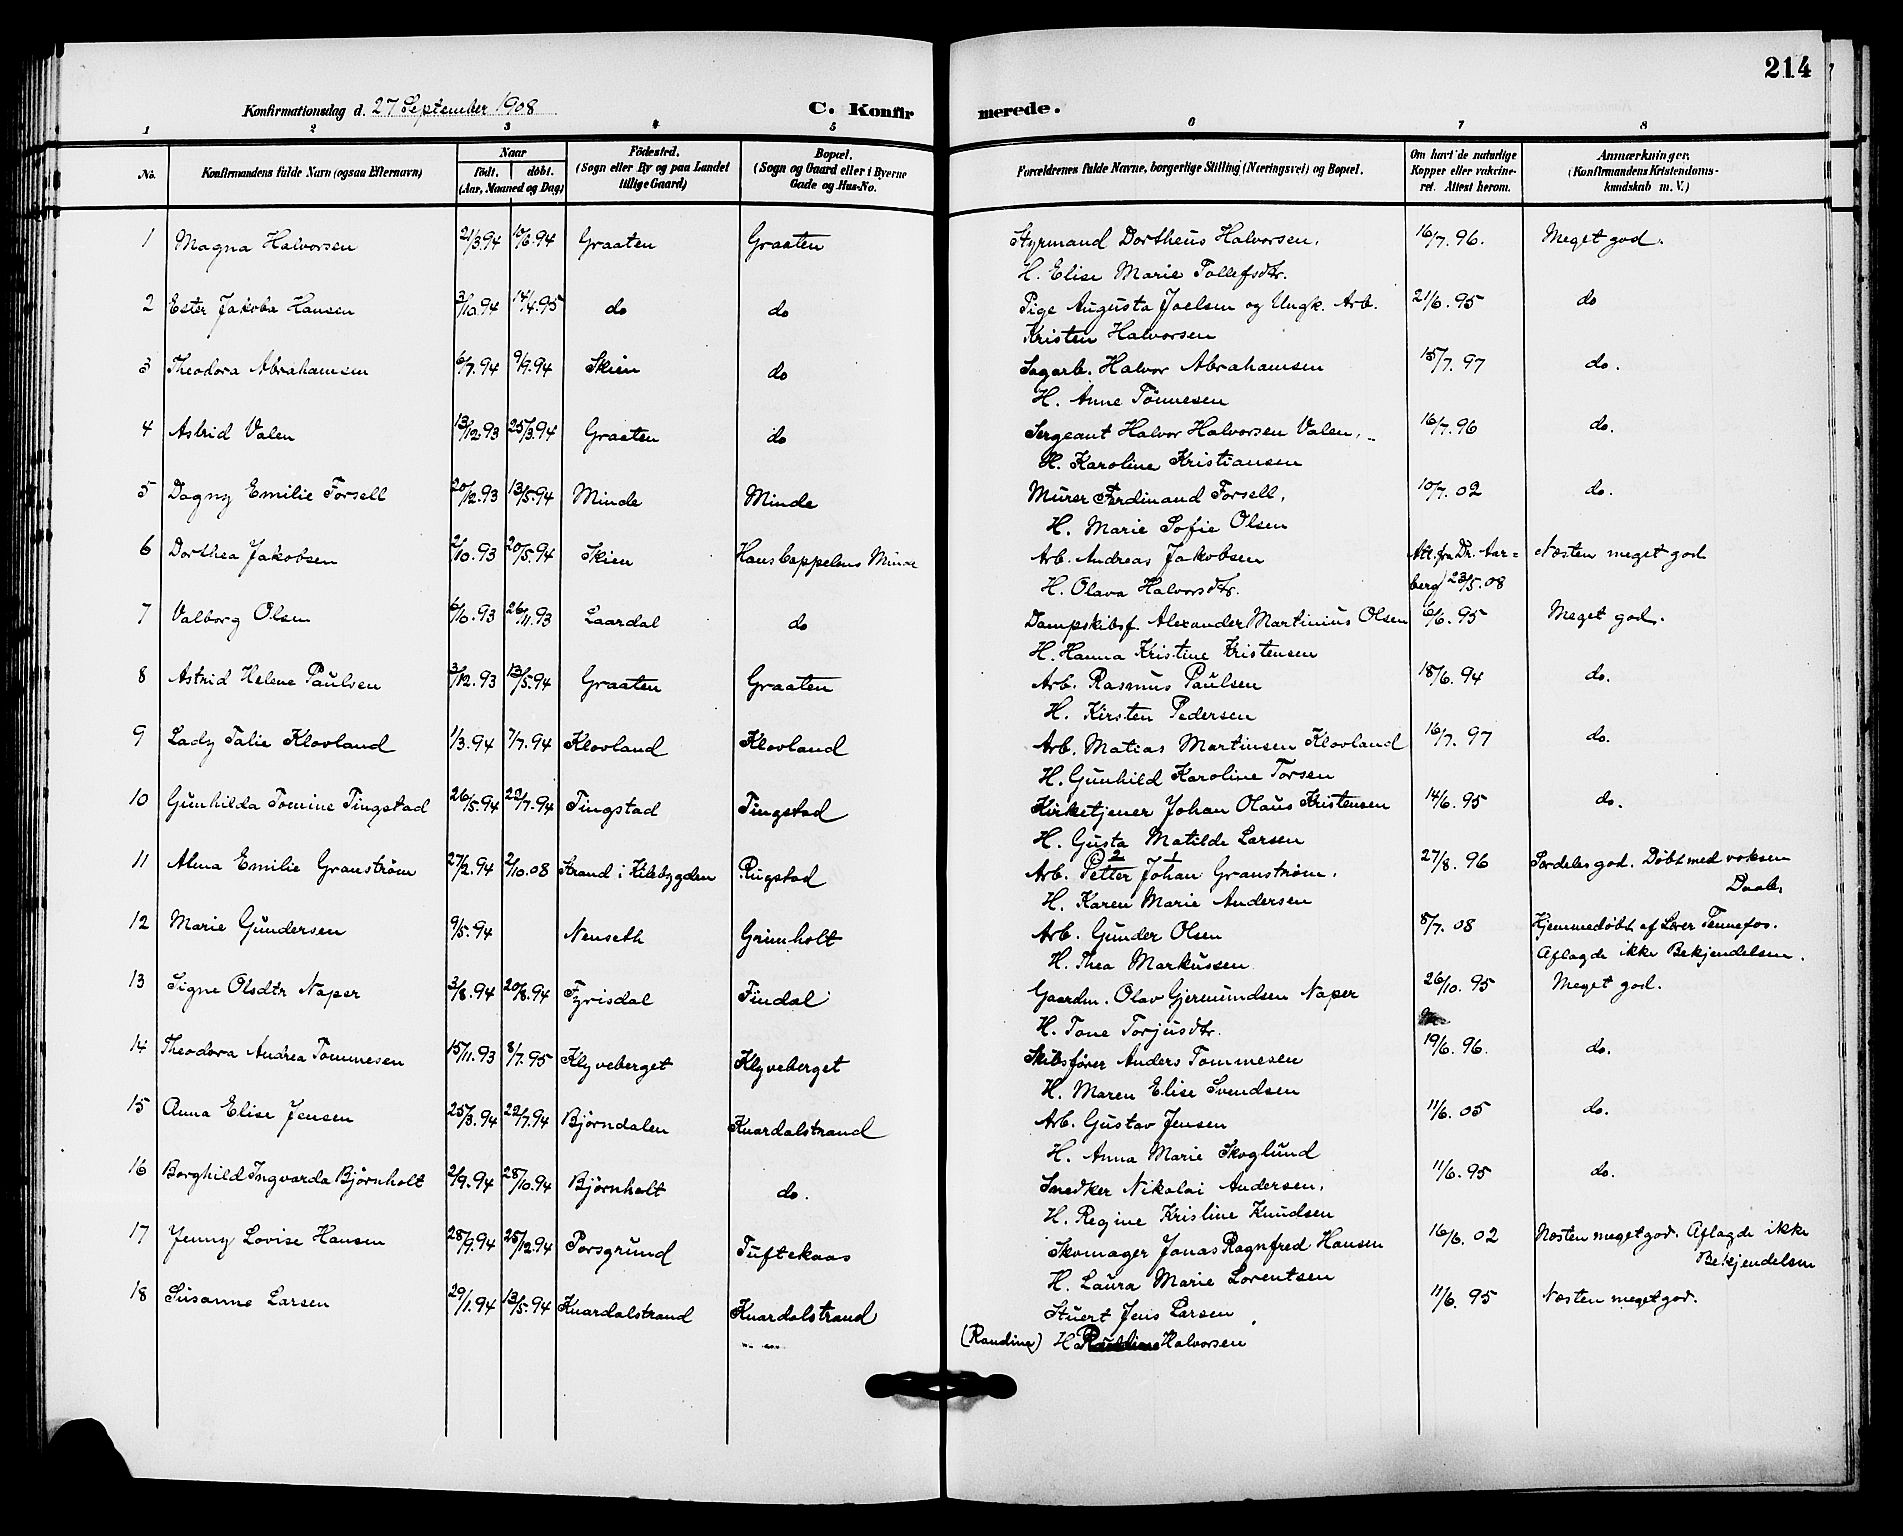 214
Konfirmationsdag d. 27 September 1908
C. Konfirmerede.
1 2 3 4 5 6 7 8
No. Konfirmandens fulde Navn (ogsaa Efternavn) Naar födt. döbt. (Aar, Maaned og Dag) Födested. (Sogn eller By og paa Landet tillige Gaard) Bopæl. (Sogn og Gaard eller i Byerne Gade og Hus-No. Forældrenes fulde Navne, borgerlige Stilling (Næringsvei) og Bopæl. Om havt de naturlige Kopper eller vakcineret. Attest herom. Anmærkninger. (Konfirmandens Kristendomskundskab m. V.)
1 Magna Halvorsen 21/3.94 10/6.94 Graaten Graaten Styrmand Dortheus Halvorsen, 16/7.96. Meget god.
H. Elise Marie Tollefsdtr.
2 Ester Jakoba Hansen 3/10.94 14/4.95 do do Pige Augusta Joelsen og Ungk. Arb. 21/6.95 do
Kristen Halvorsen
3 Theodora Abrahamsen 6/7.94 9/9.94 Skien do Sagarb. Halvor Abrahamsen 15/7.97 do.
H. Anne Tönnesen
4 Astrid Valen 13/12.93 25/3.94 Graaten do Sergeant Halvor Halvorsen Valen, 16/7.96 do.
H. Karoline Kristiansen
5 Dagny Emilie Forsell 20/12.93 13/5.94 Minde Minde Murer Ferdinand Forsell, 10/7.02 do.
H. Marie Sofie Olsen
6 Dorthea Jakobsen 2/10.93 20/5.94 Skien Hans Cappelens Minde Arb. Andreas Jakobsen Att. fra Dr. Aar= Næsten meget god
H. Olava Halvorsdtr. berg 23/5.08
7 Valborg Olsen 6/10.93 26/11.93 Laardal do Dampskibsf. Alexander Martinius Olsen 6/6.95 Meget god.
H. Hanna Kristine Kristensen
8 Astrid Helene Paulsen 3/12.93 13/5.94 Graaten Graaten Arb. Rasmus Paulsen 18/6.94 do.
H. Kirsten Pedersen
9 Lady Talie Klovland 1/3.94 7/7.94 Klovland Klovland Arb. Matias Martinsen Klovland 16/7.97 do.
H. Gunhild Karoline Torsen
10 Gunhilda Tomine Tingstad 26/5.94 22/7.94 Tingstad Tingstad Kirketjener Johan Olaus Kristensen 14/6.95 do.
H. Gusta Matilde Larsen
11 Alma Emilie Granström 27/2.94 2/10.08 Strand i Kilebygden Rugstad Arb. Petter Johan Granström. 27/8.96 Særdeles god. Döbt med voksen
2 1
H. Karen Marie Andersen Daab.
12 Marie Gundersen 9/5.94 Nenseth Grimholt Arb. Gunder Olsen 8/7.08 Hjemmedöbt af Lærer Tennefos.
H. Thea Markussen Aflagde ikke Bekjendelsen.
13 Signe Olsdtr Naper 3/8.94 20/8.94 Fyrisdal Findal Gaardm. Olav Gjermundsen Naper 26/10.95 Meget god.
H. Tone Torjusdtr.
14 Theodora Andrea Tommesen 15/11.93 8/7.95 Klyveberget Klyveberget Skibsförer Anders Tommesen 19/6.96. do.
H. Maren Elise Svendsen
15 Anna Elise Jensen 25/3.94 22/7.94 Björndalen Knardalstrand Arb. Gustav Jensen 11/6.05 do.
H. Anna Marie Skoglund
16 Borghild Ingvarda Björnholt 2/9.94 28/10.94 Björnholt do. Snedker Nikolai Andersen, 11/6.95 do.
H. Regine Kristine Knudsen
17 Jenny Lovise Hansen 28/9.94 25/12.94 Porsgrund Tuftekaas Skomager Jonas Ragnfred Hansen 16/6.02 Næsten meget god. Aflagde ikke
H. Laura Marie Lorentsen Bekjendelsen
18 Susanne Larsen 29/1.94 13/5.94 Knardalstrand Knardalstrand Stuert Jens Larsen 11/6.95 Næsten meget god.
(Randine) H. Halvorsen